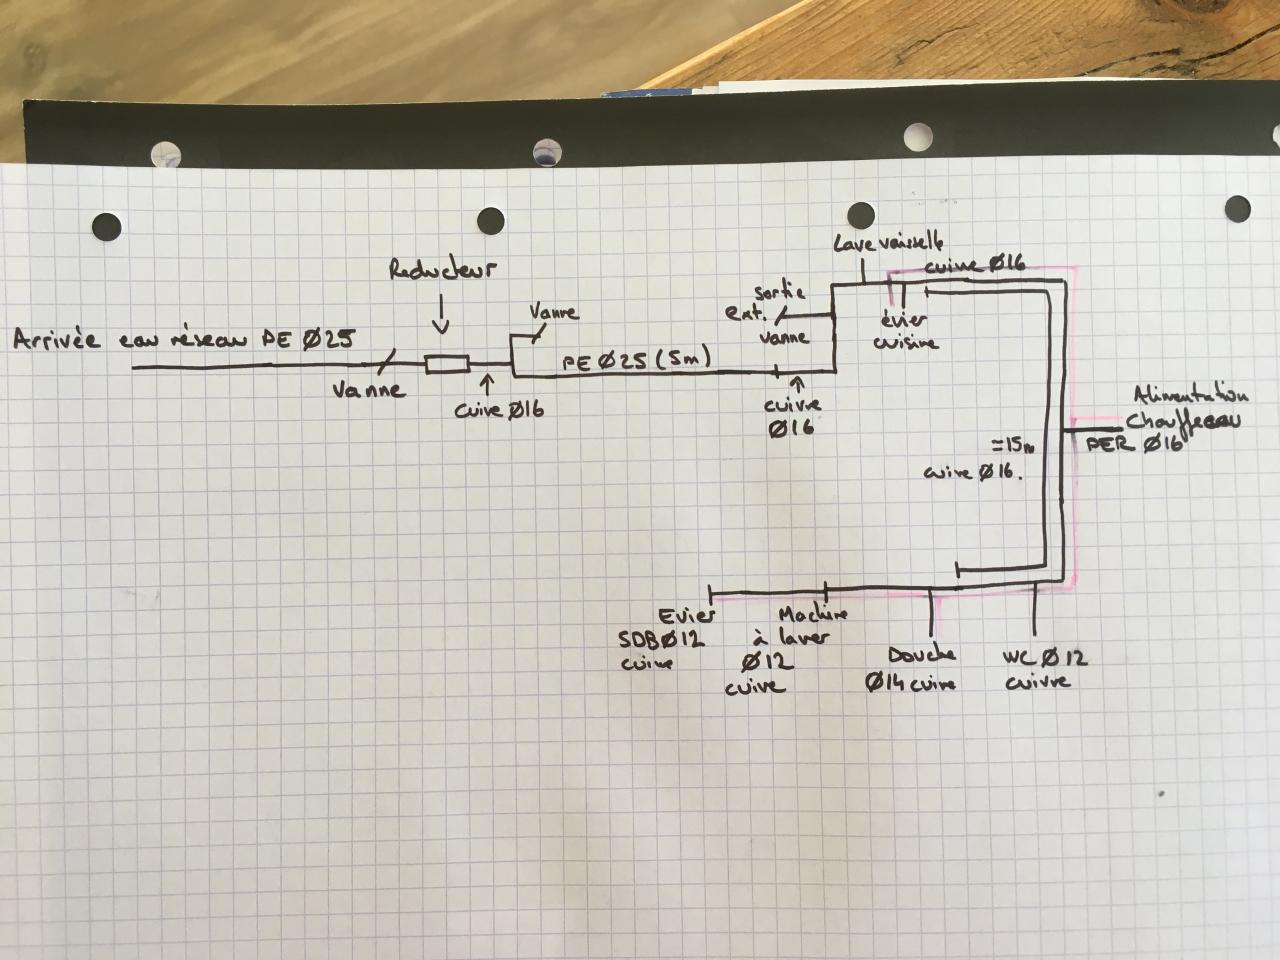 Reducteur
Arrivée eau réseau PE Ø25
Vanne
cuive Ø16
Vanne
PE Ø25 (5m)
Sortie
ext.
vanne
cuivre
Ø16
Lave vaisselle
cuivre Ø16
évier
cuisine
Alimentation
Chauffeeau
PER Ø16
≃15m
cuivre Ø16.
Evier
SDB Ø12
cuivre
Machine
à laver
Ø12
cuivre
Douche
Ø14 cuivre
WC Ø12
cuivre